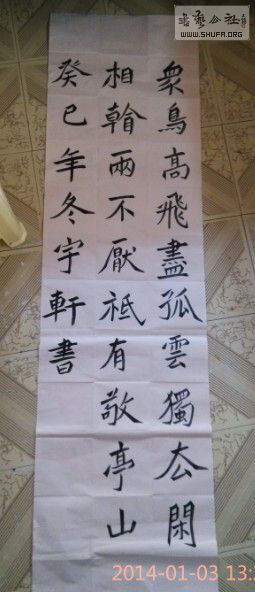 書藝公社
WWW.SHUFA.ORG
衆鳥高飛盡孤雲獨厺閑
相翰兩不厭祗有敬亭山
癸巳年冬宇軒書
2014-01-03 13: